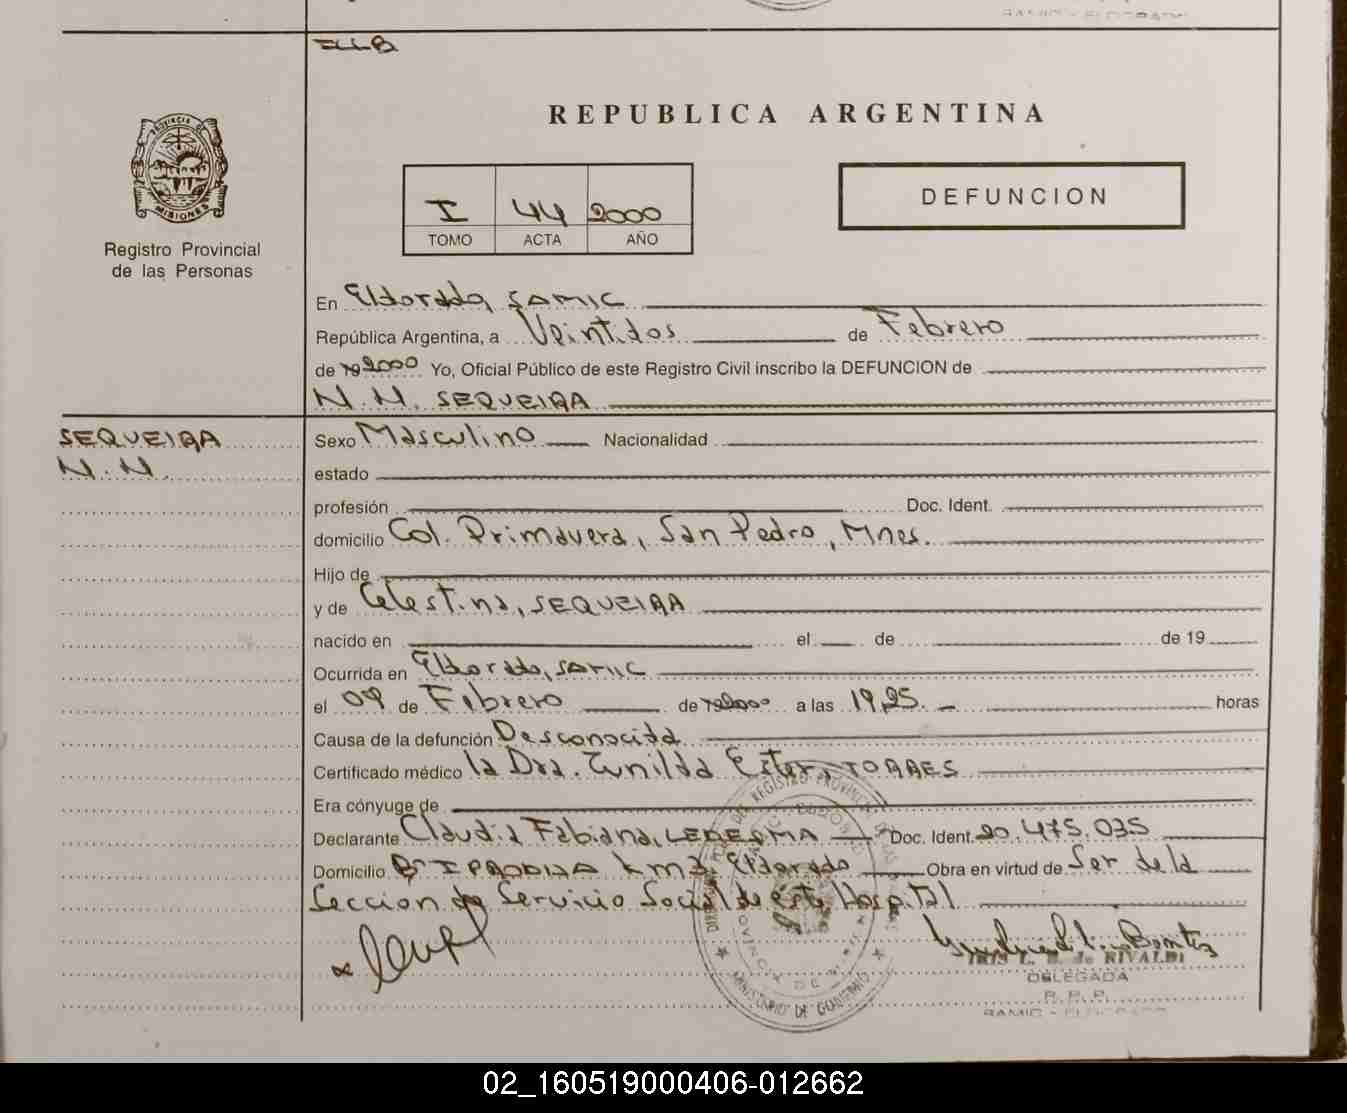 ELLB
REPUBLICA ARGENTINA
PROVINCIA DE
MISIONES
Registro Provincial
de las Personas
I 44 2000
TOMO ACTA AÑO
DEFUNCION
En Eldorado, SAMIC
República Argentina, a Veintidos de Febrero
de 19 2000 Yo, Oficial Público de este Registro Civil inscribo la DEFUNCION de
N.N. SEQUEIRA
SEQUEIRA
N.N.
Sexo Masculino Nacionalidad
estado
profesión Doc. Ident.
domicilio Col. Primavera, San Pedro, Mnes.
Hijo de
y de Celestina, SEQUEIRA
nacido en el de de 19
Ocurrida en Eldorado, SAMIC
el 09 de Febrero de 19 2000 a las 19,25 horas
Causa de la defunción Desconocida
Certificado médico la Dra. Zunilda Ester, TORRES
Era cónyuge de
Declarante Claudia Fabiana, LEDESMA Doc. Ident. 20.475.035
Domicilio Bº IPRODHA Km 2, Eldorado Obra en virtud de Ser de la
Sección de Servicio Social de éste Hospital
MINISTERIO DE GOBIERNO
IRIS L. B. de RIVALDI
DELEGADA
R. P. P.
SAMIC - ELDORADO
02_160519000406-012662